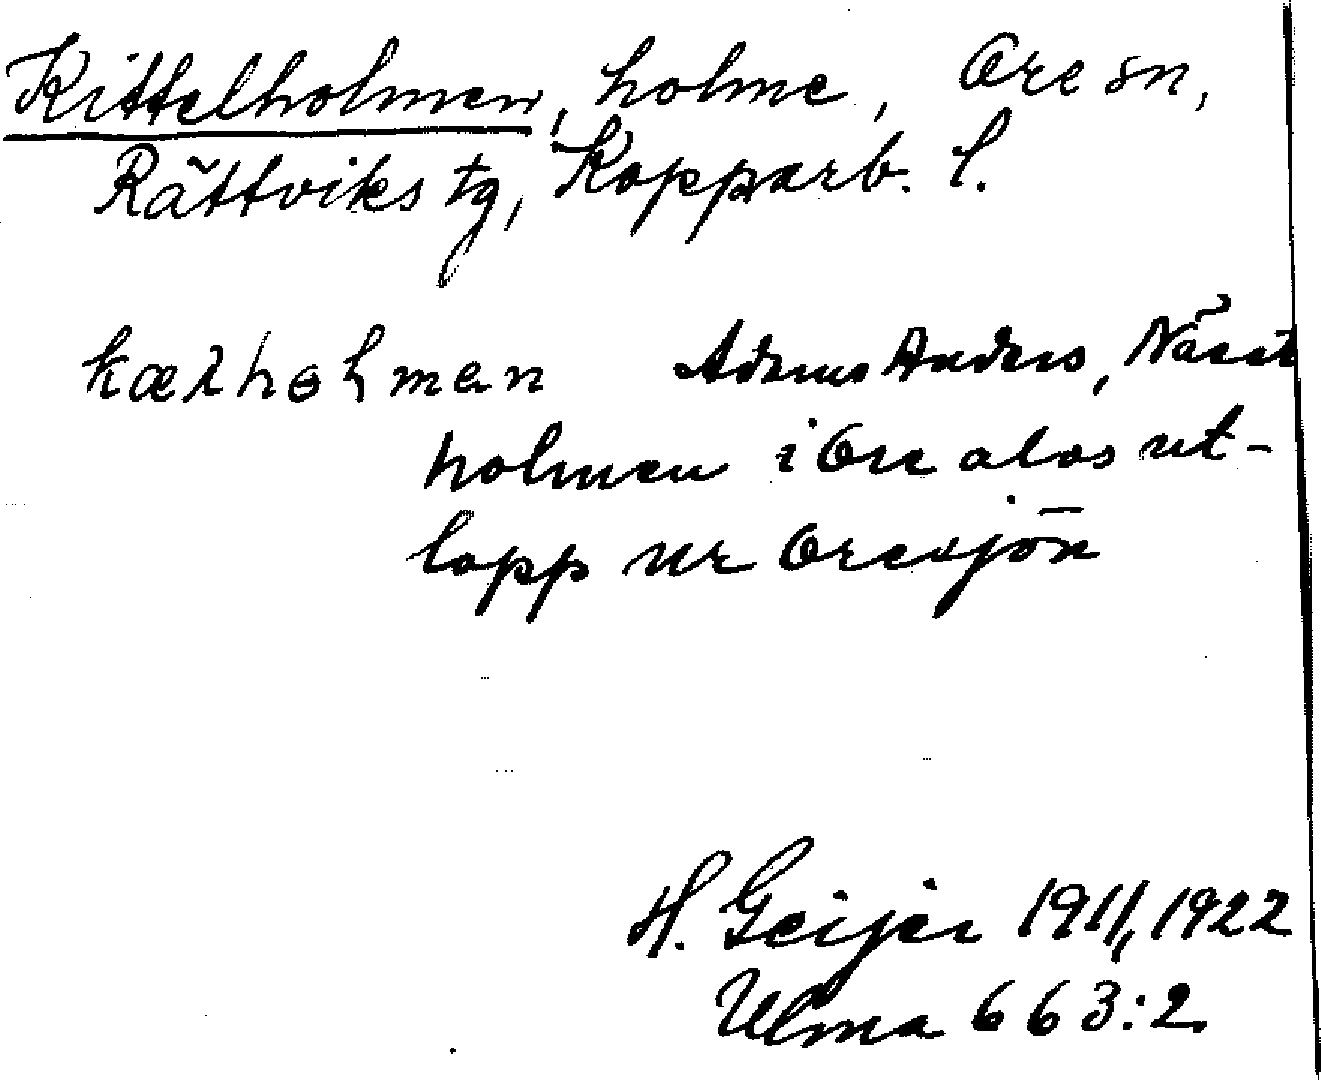 Kittelholmen, holme, Ore sn,
Rättviks tg, Kopparb. l.
kæɪholmen Adams Anders, Näset
holmen i Ore älvs ut-
lopp ur Oresjön
H. Geijer 1911, 1922
Ulma 663:2